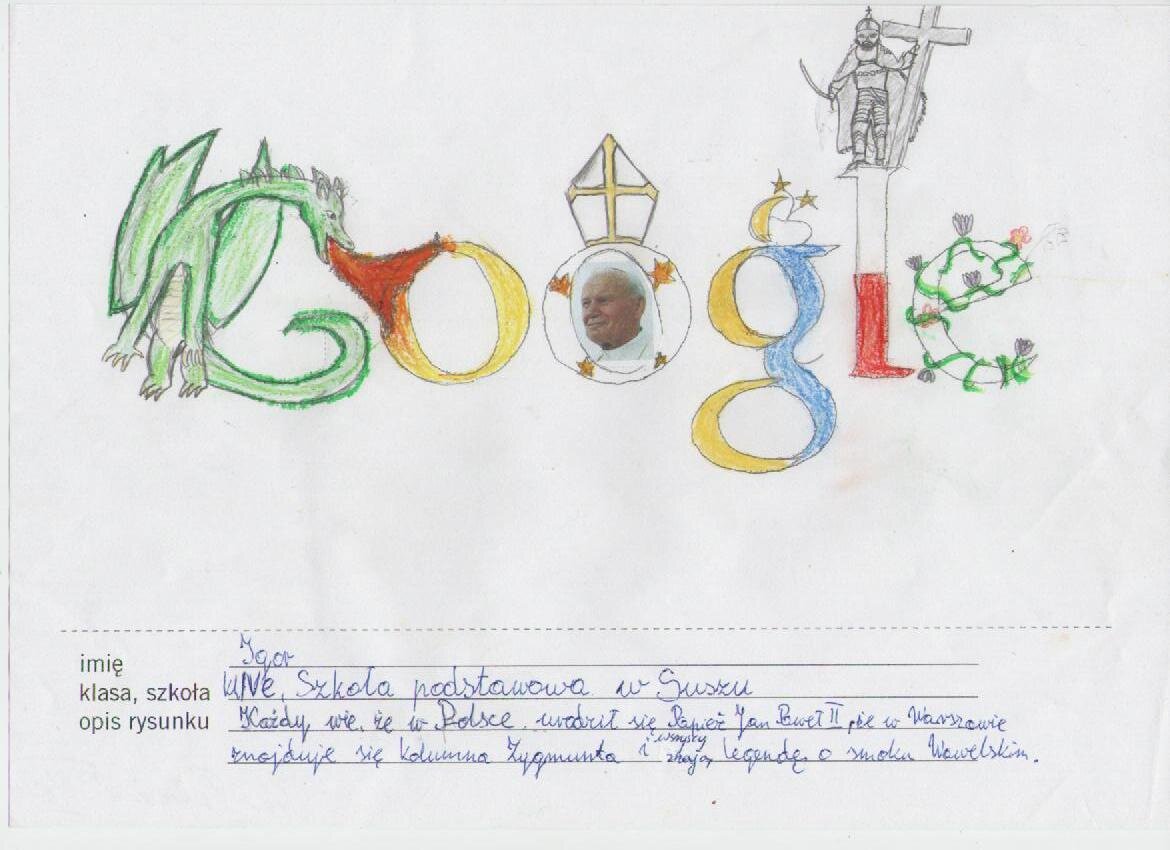 Google
imię Igor
klasa, szkoła kl IVe, Szkoła podstawowa w Suszu
opis rysunku Każdy wie, że w Polsce urodził się Papież Jan Paweł II, że w Warszawie
znajduje się kolumna Zygmunta i wszyscy znają legendę o smoku Wawelskim.